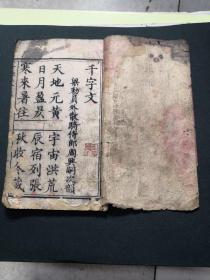 千字文
梁勅員外散騎侍郎周興嗣次韻
天地元黃 宇宙洪荒
日月盈昃 辰宿列張
寒來暑往 秋收冬藏